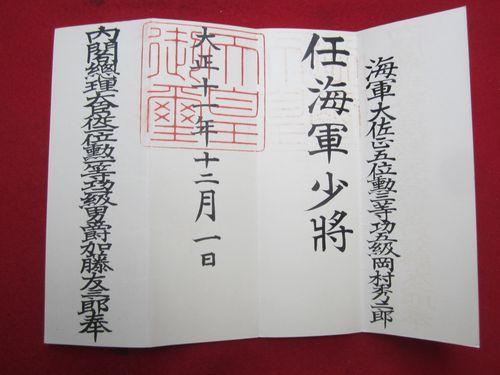 海軍大佐正五位勲三等功五級岡村郎
任海軍少將
天皇
御璽
大正十一年十二月一日
内閣總理大臣從二位勲一等功二級男爵加藤友三郎奉